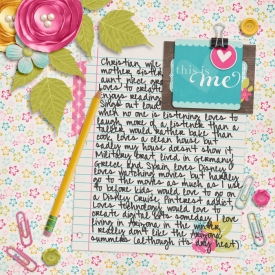 this is
me
Christian, wife,
mother, sister,
aunt, niece,
Loves to create
enjoys reading
Sings out loud
when no one is listening loves to
laugh more of a listener than a
talker would rather bake than
cook, loves a clean house but
sadly my house doesn't show it
Military brat, lived in Germany
Greece, and Spain loves Disney
loves watching movies, but hardly
go to the movies as much as I use
to before kids, would love to go on
a Disney Cruise, Pinterest addict,
Loves technology would love to
create digital kits someday I love
living in Arizona in the winter,
really don't like the Arizona
summers (although its dry heat)